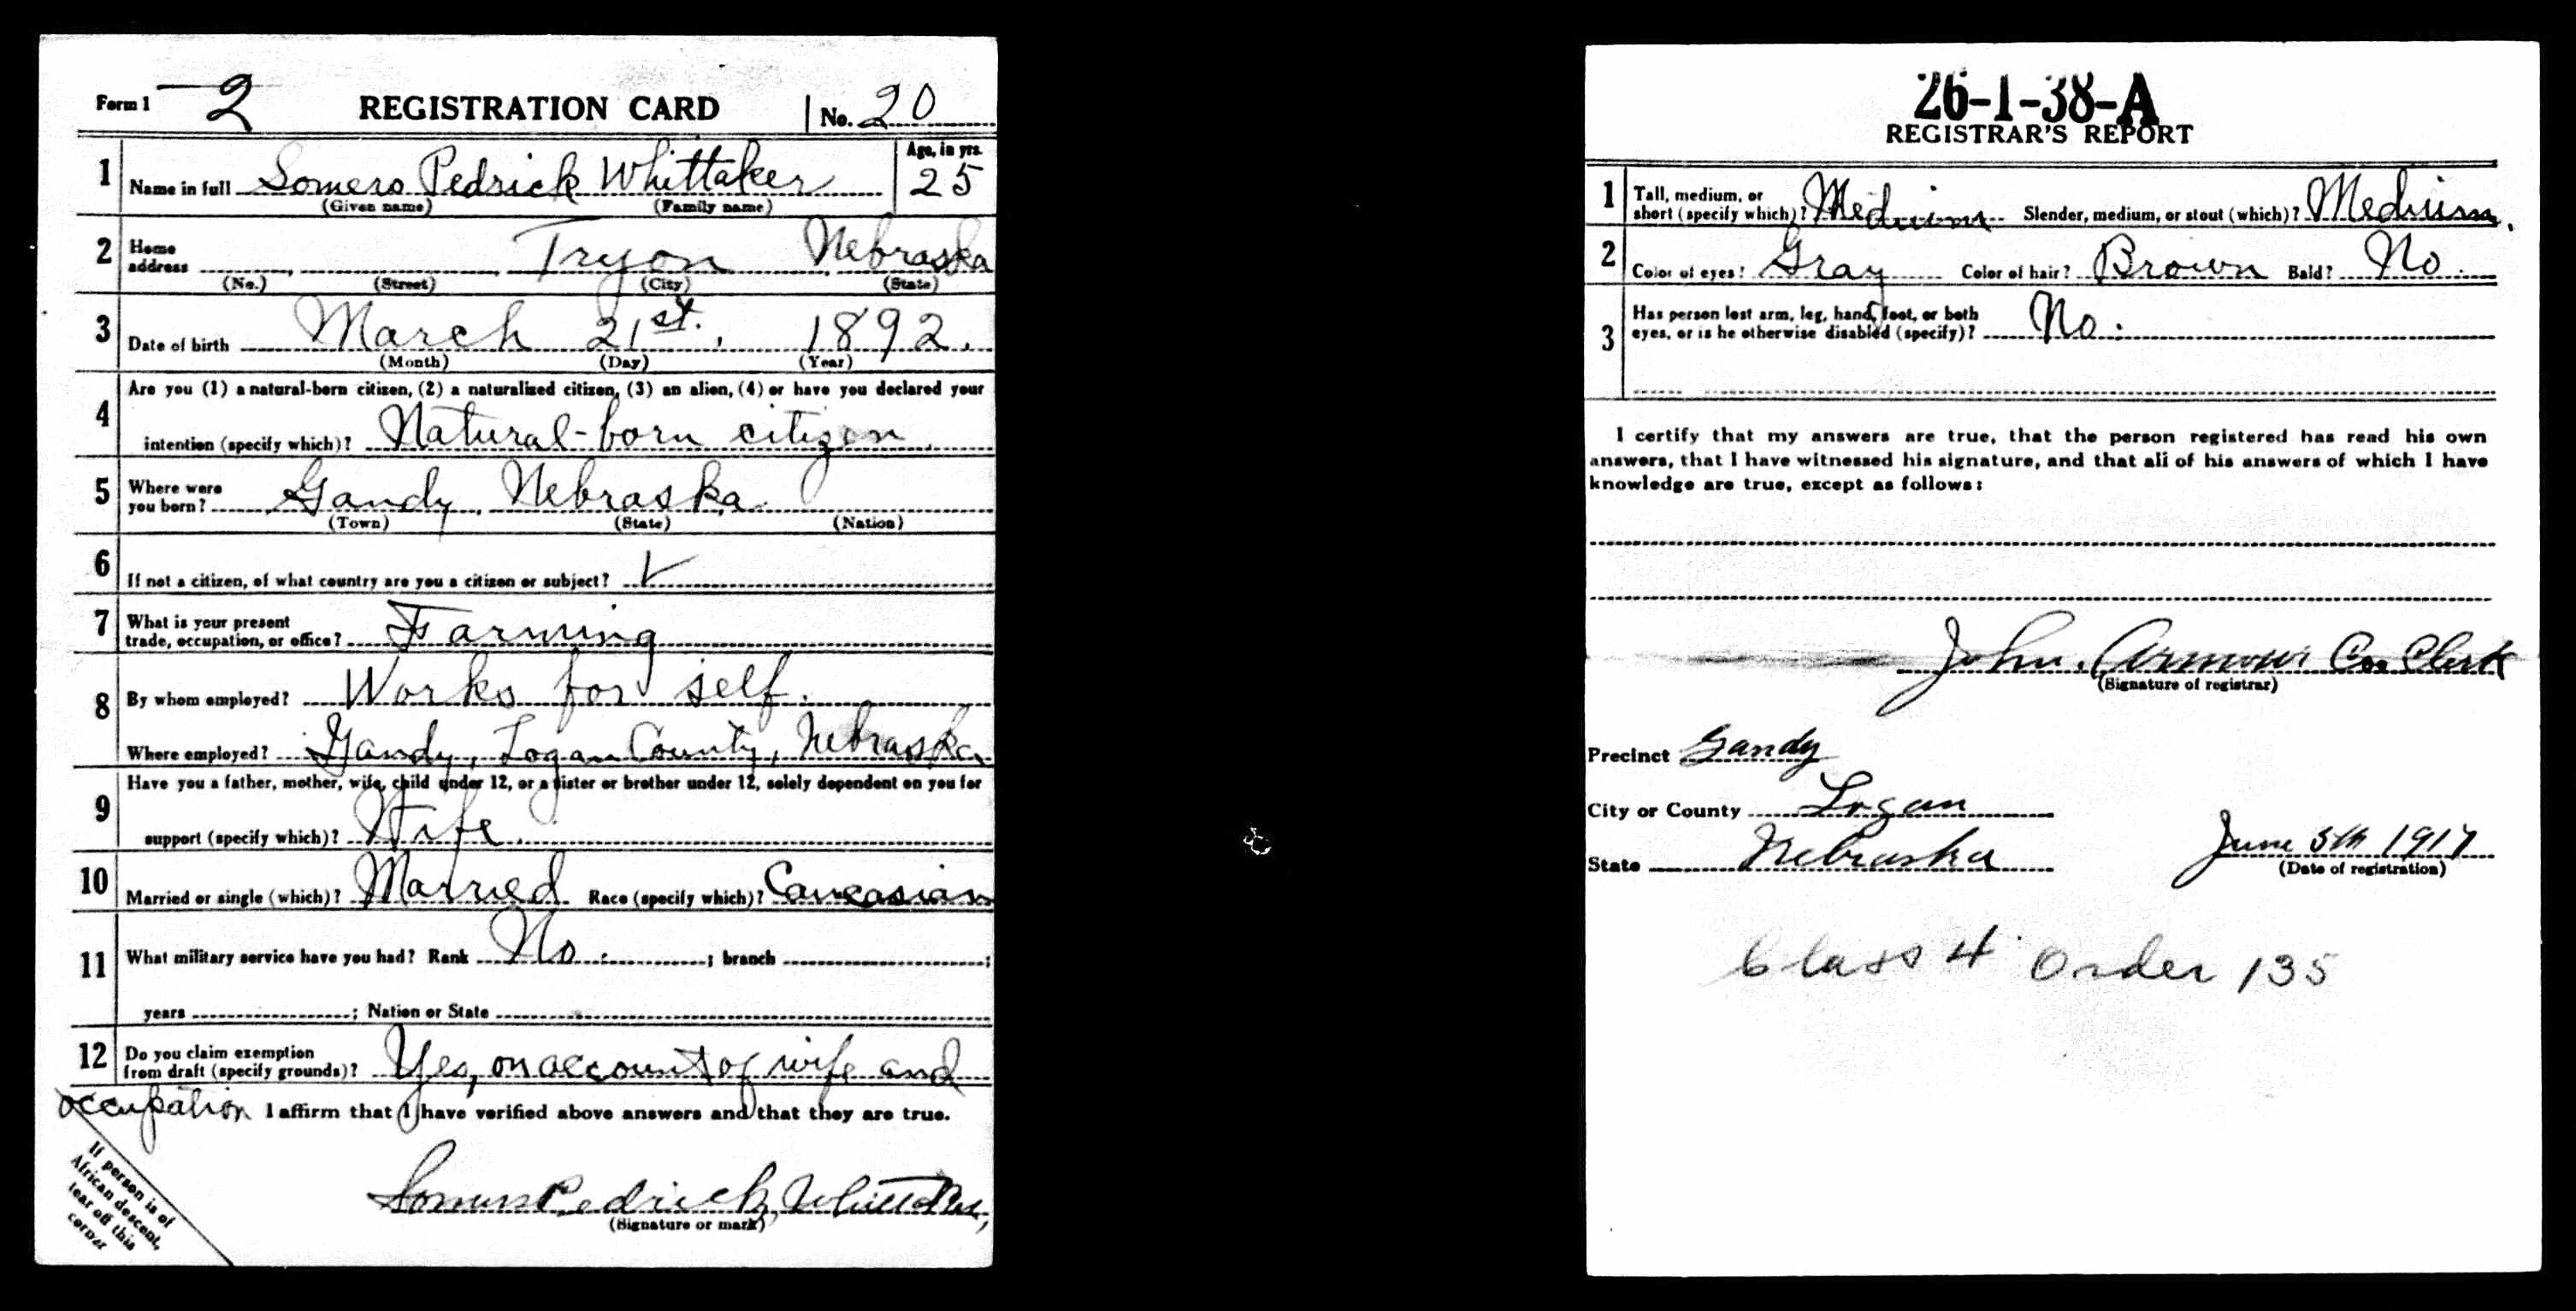 Form 1 2 REGISTRATION CARD No. 20
1 Name in full Somers Pedrick Whittaker Age, in yrs. 25
(Given name) (Family name)
2 Home address Tryon Nebraska
(No.) (Street) (City) (State)
3 Date of birth March 21st. 1892.
(Month) (Day) (Year)
4 Are you (1) a natural-born citizen, (2) a naturalized citizen, (3) an alien, (4) or have you declared your
intention (specify which)? Natural-born citizen.
5 Where were you born? Gandy, Nebraska.
(Town) (State) (Nation)
6 If not a citizen, of what country are you a citizen or subject? ✓
7 What is your present trade, occupation, or office? Farming
8 By whom employed? Works for self.
Where employed? Gandy, Logan County, Nebraska
9 Have you a father, mother, wife, child under 12, or a sister or brother under 12, solely dependent on you for
support (specify which)? Wife.
10 Married or single (which)? Married Race (specify which)? Caucasian
11 What military service have you had? Rank No. ; branch ;
years ; Nation or State
12 Do you claim exemption from draft (specify grounds)? Yes, on account of wife and
occupation I affirm that I have verified above answers and that they are true.
Somers Pedrick Whittaker,
(Signature or mark)
If person is of
African descent,
tear off this
corner
26-1-38-A
REGISTRAR'S REPORT
1 Tall, medium, or short (specify which)? Medium Slender, medium, or stout (which)? Medium.
2 Color of eyes? Gray Color of hair? Brown Bald? No.
3 Has person lost arm, leg, hand, foot, or both
eyes, or is he otherwise disabled (specify)? No.
I certify that my answers are true, that the person registered has read his own
answers, that I have witnessed his signature, and that all of his answers of which I have
knowledge are true, except as follows:
John. Armour Co. Clerk
(Signature of registrar)
Precinct Gandy
City or County Logan
State Nebraska June 5th 1917
(Date of registration)
Class 4 Order 135